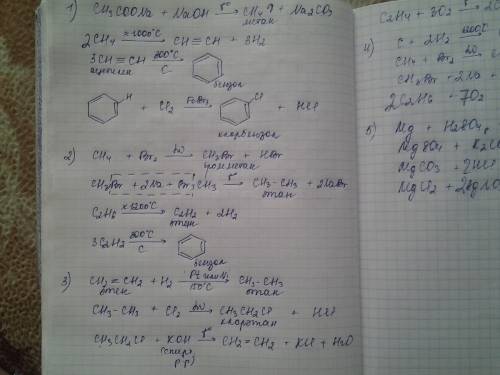 1) CH3COONa + NaOH →t° CH4↑ + Na2CO3
метан
2CH4 →>1000°C CH≡CH + 3H2
3CH≡CH →300°C C
ацетилен бензол
H + Cl2 →FeBr3 Cl + HCl
хлорбензол
2) CH4 + Br2 →hν CH3Br + HBr
бромметан
CH3Br + 2Na + Br CH3 →t° CH3-CH3 + 2NaBr
этан
C2H6 →>1200°C C2H2 + 2H2
этин
3C2H2 →300°C C
бензол
3) CH2=CH2 + H2 →Pt или Ni 150°C CH3-CH3
этен этан
CH3-CH3 + Cl2 →hν CH3CH2Cl + HCl
хлорэтан
CH3CH2Cl + KOH →t° CH2=CH2 + KCl + H2O
(спирт. р-р)
C2H4 + 3O2 →
4) C + 2H2
CH4 + Br2
CH3Br + 2Na
2C2H6 + 7O2
5) Mg + H2SO4
MgSO4 + K2C
MgCO3 + 2HCl
MgCl2 + 2AgNO